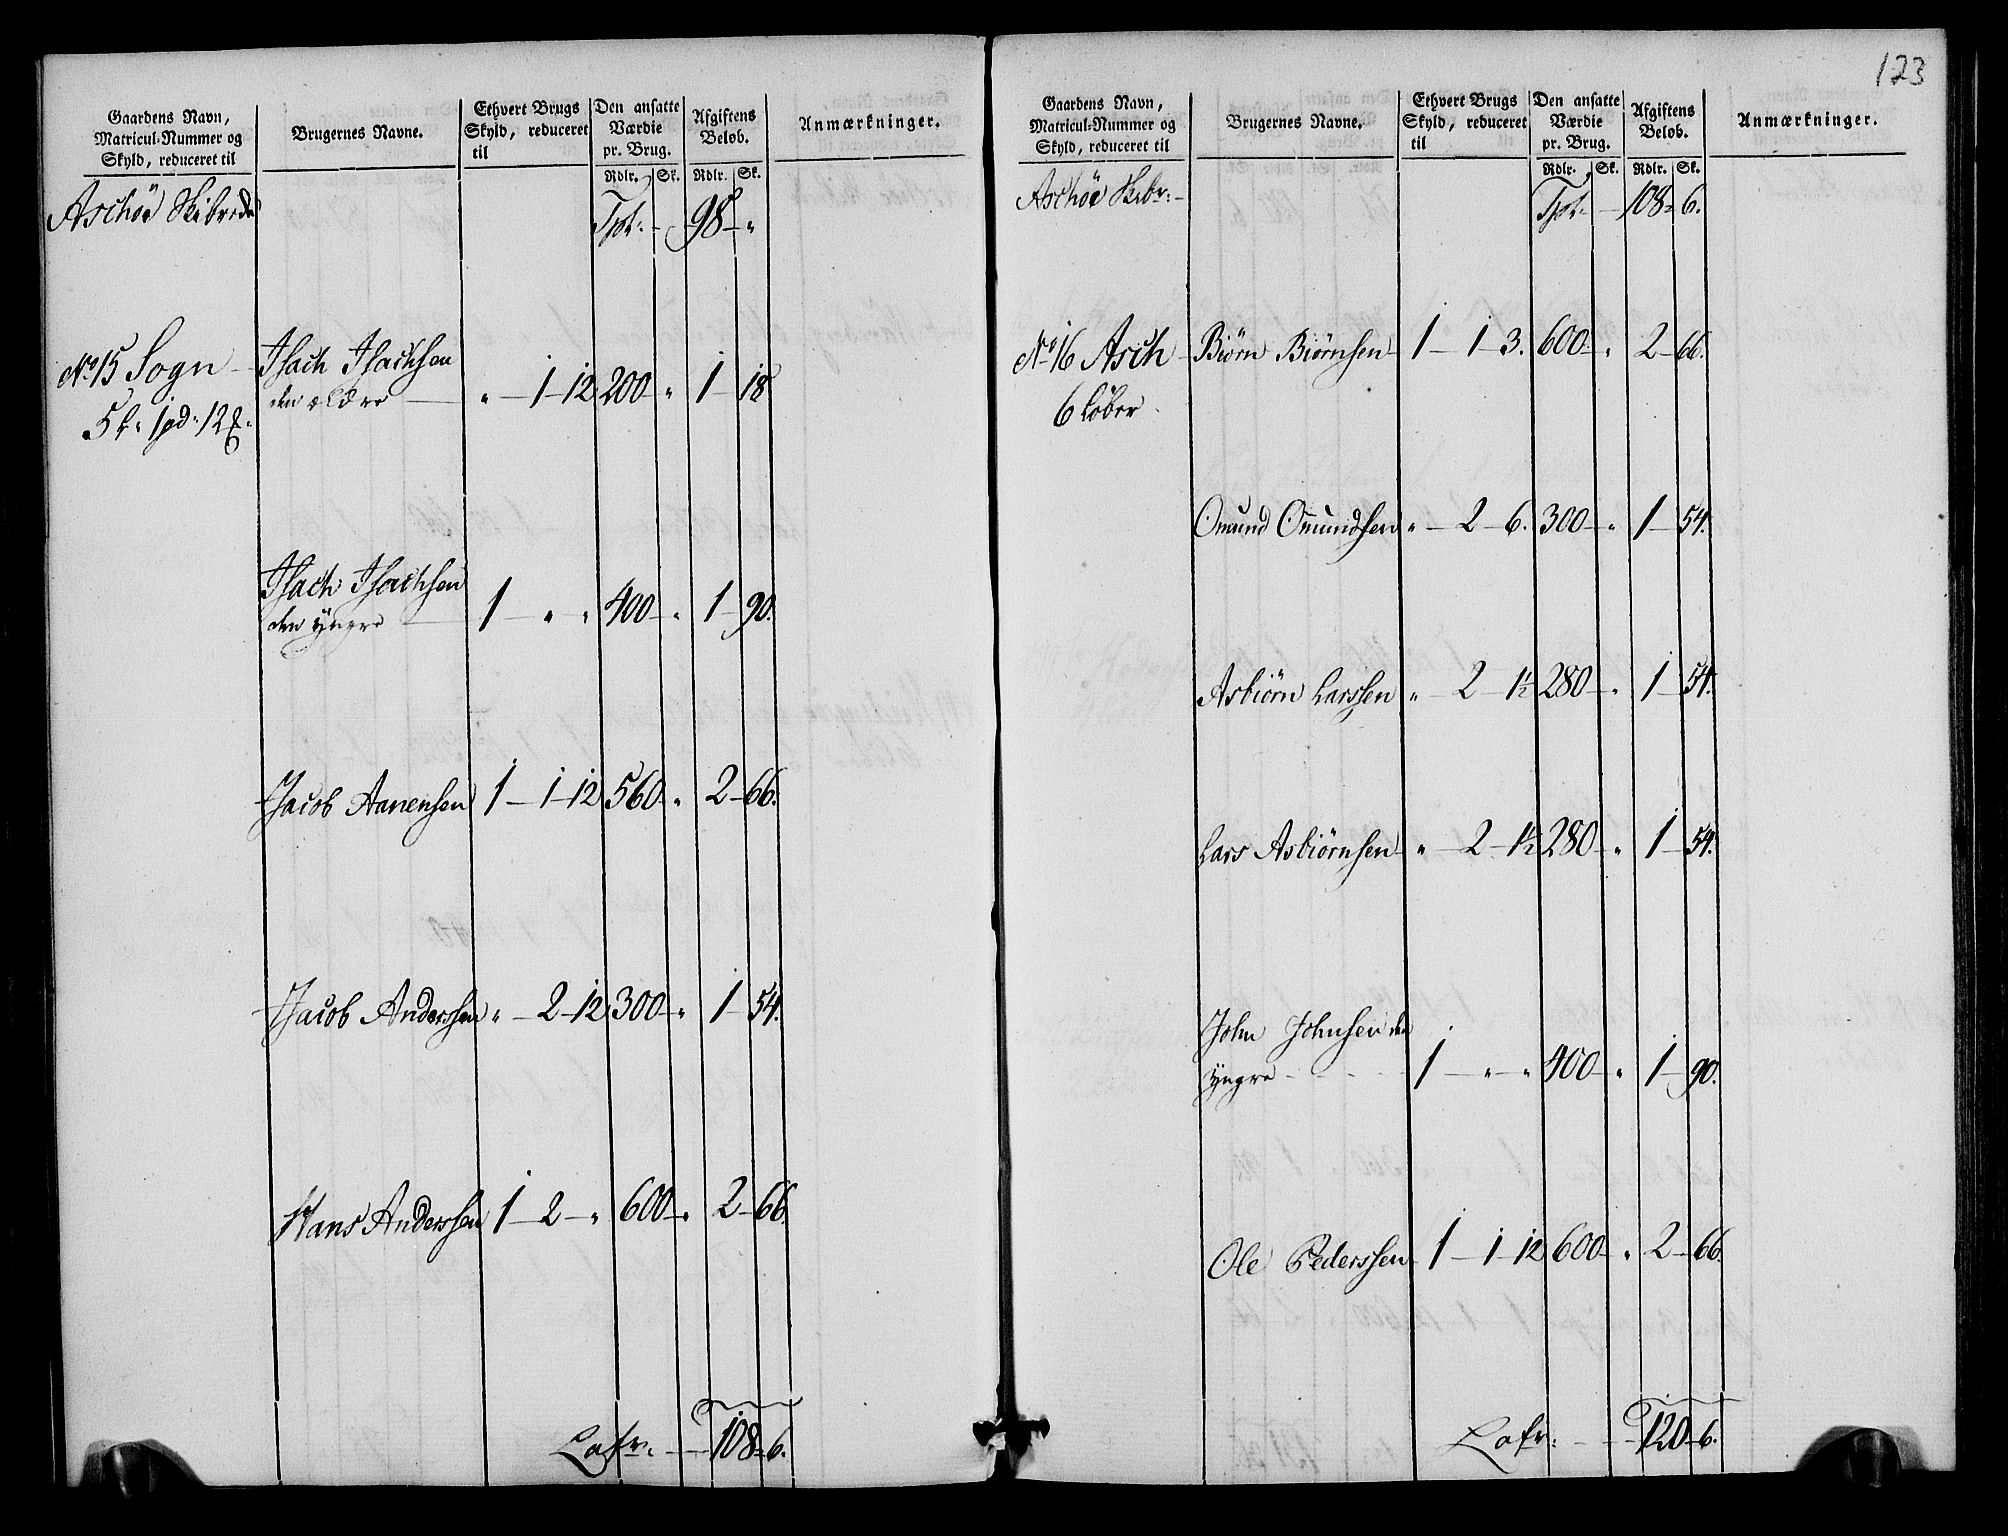 Gaardens Navn,
Matricul-Nummer og
Skyld, reduceret til
Brugernes Navne.
Ethvert Brugs
Skyld, reduceret
til
Den ansatte
Værdie
pr. Brug.
Rdlr. Sk.
Afgiftens
Beløb.
Rdlr. Sk.
Anmærkninger.
Aschøe Skibrede
Tpt: 98 — "
No 15 Sogn
5 L. 1 pd. 12 
Isach Isachsen
den eldre — " — 1 — 12 200 — " 1 — 18
Isach Isachsen
den yngre — 1 — " " 400 — " 1 — 90.
Jacob Aanensen 1 — 1 — 12 560 — " 2 — 66.
Jacob Anderssen " — 2 — 12 300 — " 1 — 54.
Hans Anderssen 1 — 2 — " 600 — " 2 — 66.
Lafr: — 108 — 6.
123
Gaardens Navn,
Matricul-Nummer og
Skyld, reduceret til
Brugernes Navne.
Ethvert Brugs
Skyld, reduceret
til
Den ansatte
Værdie
pr. Brug.
Rdlr. Sk.
Afgiftens
Beløb.
Rdlr. Sk.
Anmærkninger.
Aschøe Skibr: —
Tpt: — 108 — 6.
No 16 Asch
6 Løber
Biørn Biørnsen 1 — 1 — 3. 600 — " 2 — 66.
Omund Omundsen " — 2 — 6. 300 — " 1 — 54.
Asbiørn Larssen " — 2 — 1½ 280 — " 1 — 54.
Lars Asbiørnsen — " — 2 — 1½ 280 — " 1 — 54.
John Johnsen den
yngre — 1 — " — " 400 — " 1 — 90.
Ole Pederssen 1 — 1 — 12 600 — " 2 — 66.
Lafr: — 120 — 6.